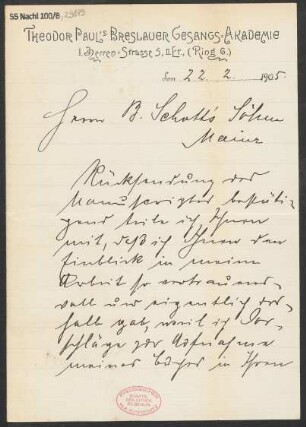 55 Nachl 100/B,
THEODOR PAUL'S BRESLAUER GESANGS-AKADEMIE
I. Herren-Strasse 5, II Et., (Ring 6.)
den 22. 2. 1905
Herrn B. Schott's Söhne
Mainz
Rücksendung des
Manuscriptes bestäti-
gend teile ich Ihnen
mit, daß ich Ihnen den
Einblick in meine
Arbeit so vertrauens-
voll und eigentlich des-
halb gab, weil ich Vor-
schläge zur Aufnahme
meines Buches in Ihren